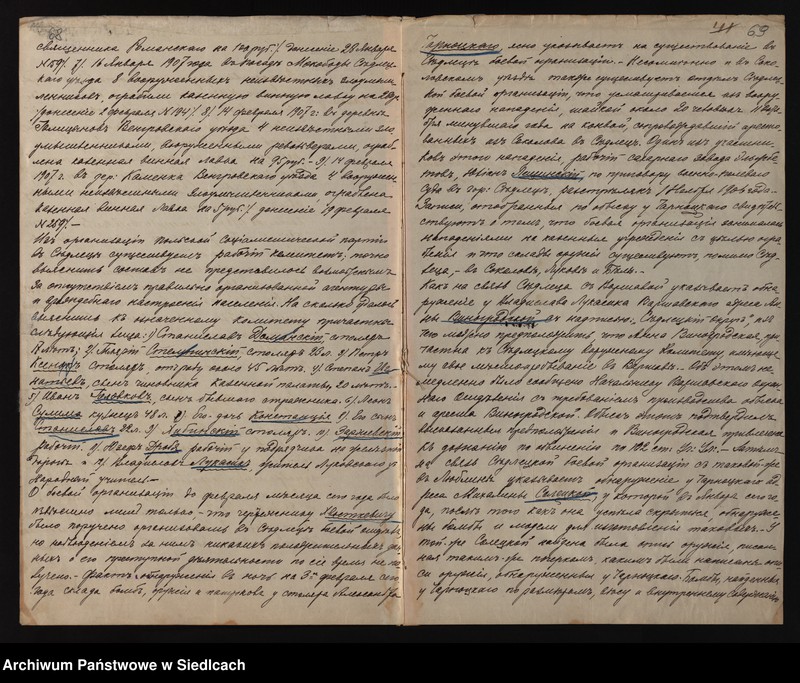 68
священника Романскаго на 100 руб./ донесеніе 28 Января
№ 159/. 7/ 16 Января 1907 года въ посадѣ Мокободы Сѣдлец-
каго уѣзда 8 вооруженныхъ неизвѣстныхъ злоумыш-
ленниковъ ограбили казенную винную лавку на
/донесеніе 2 февраля № 194/. 8/ 14 февраля 1907 г. въ деревнѣ
Венгровскаго уѣзда 4 неизвѣстными зло-
умышленниками, вооруженными револьверами, ограб-
лена казенная винная лавка на 95 руб. - 9/ 14 февраля
1907 г. въ дер. Каменка Венгровскаго уѣзда 4 вооружен-
ными неизвѣстными злоумышленниками ограблена
казенная винная лавка на руб./ донесеніе 19 февраля
№ 259/. -
Изъ организацій польской соціалистической партіи
въ Сѣдлецѣ существуетъ рабочій комитетъ; точно
выяснить составъ не представилось возможнымъ
за отсутствіемъ правильно организованной агентуры
и враждебнаго настроенія населенія. На сколько дѣломъ
выяснено къ означенному комитету причастны
слѣдующія лица: 1) Станиславъ Доманскій, столяръ
лѣтъ; 2) Іосифъ столяръ 3) Петръ
столяръ, отъ роду около 45 лѣтъ. 4) Степанъ Иг-
натьевъ, сынъ чиновника казенной палаты, 20 лѣтъ. -
5) Иванъ сынъ бывшаго стражника. 6) Леонъ
Сумила кузнецъ 48 л. 7) Его дочь Констанція 8) Его сынъ
Станиславъ 22 л. 9) столяръ. 10)
рабочій. 11) Іосифъ рабочій у подрядчика на
и 12) Владиславъ Лукасикъ бывшій Луковскаго у.
Народный учитель. -
О боевой организаціи до февраля мѣсяца сего года было
извѣстно мнѣ только, - что нѣкоему
было поручено организовать въ Сѣдлецѣ боевой отрядъ
но наблюденіемъ за нимъ никакихъ положительныхъ дан-
ныхъ о его преступной дѣятельности по сіе время не по-
лучено. - Фактъ обнаруженія въ ночь на 3е февраля сего
года склада бомбъ, оружія и патроновъ у столяра
69
Чарноцкаго, ясно указываетъ на существованіе въ
Сѣдлецѣ боевой организаціи. - Несомнѣнно и въ Соко-
ловскомъ уѣздѣ также существуетъ отдѣлъ Сѣдлец-
кой боевой организаціи, что усматривается изъ воору-
женнаго нападенія, шайкой около 20 человѣкъ
минувшаго года на конвой, сопровождавшій аресто-
ванныхъ изъ Соколова въ Сѣдлецъ. Одинъ изъ участни-
ковъ этого нападенія, рабочій сахарнаго завода Эльжбе-
товъ, по приговору военно-полеваго
суда въ гор. Сѣдлецѣ, разстрѣлянъ 1 Ноября 1906 года.
Записи, отобранныя по обыску у Чарноцкаго свидѣтель-
ствуютъ о томъ, что боевая организація занималась
нападеніями на казенныя учрежденія съ цѣлью огра-
бленія и что склады оружія существуютъ, помимо Сѣд-
леца, - въ Соколовѣ, Луковѣ и
Какъ на связь Сѣдлеца съ Варшавой указываетъ обна-
руженіе у Владислава Лукасика Варшавскаго адреса Ан-
ны Виногродской съ надписью: „Сѣдлецкій изъ
чего можно предположить что Анна Виногродская, при-
частна къ Сѣдлецкому Окружному Комитету, имѣюще-
му свое мѣстопребываніе въ Варшавѣ. - Объ этомъ не-
медленно было сообщено Начальнику Варшавскаго охран-
наго Отдѣленія съ требованіемъ производства обыска
и ареста Виногродской. Обыскъ этотъ подтвердилъ
высказанныя предположенія и Виногродская привлечена
къ дознанію по обвиненію по 102 ст. Уг. Ул. -
на связь Сѣдлецкой боевой организаціи съ таковой-же
въ Люблинѣ указываетъ обнаруженіе у Чарноцкаго ад-
реса Михалины Салецкой, у которой въ Январѣ сего го-
да, послѣ того какъ она успѣла скрыться, обнаруже-
ны бомбы и модели для изготовленія таковыхъ. - У
той-же Салецкой найдена была опись оружія, писан-
ная такимъ-же почеркомъ, какимъ были написаны опи-
си оружія, обнаруженныя у Чарноцкаго. Бомбы, найденныя
у Чарноцкаго по размѣрамъ, вѣсу и внутреннему содержанію
Archiwum Państwowe w Siedlcach